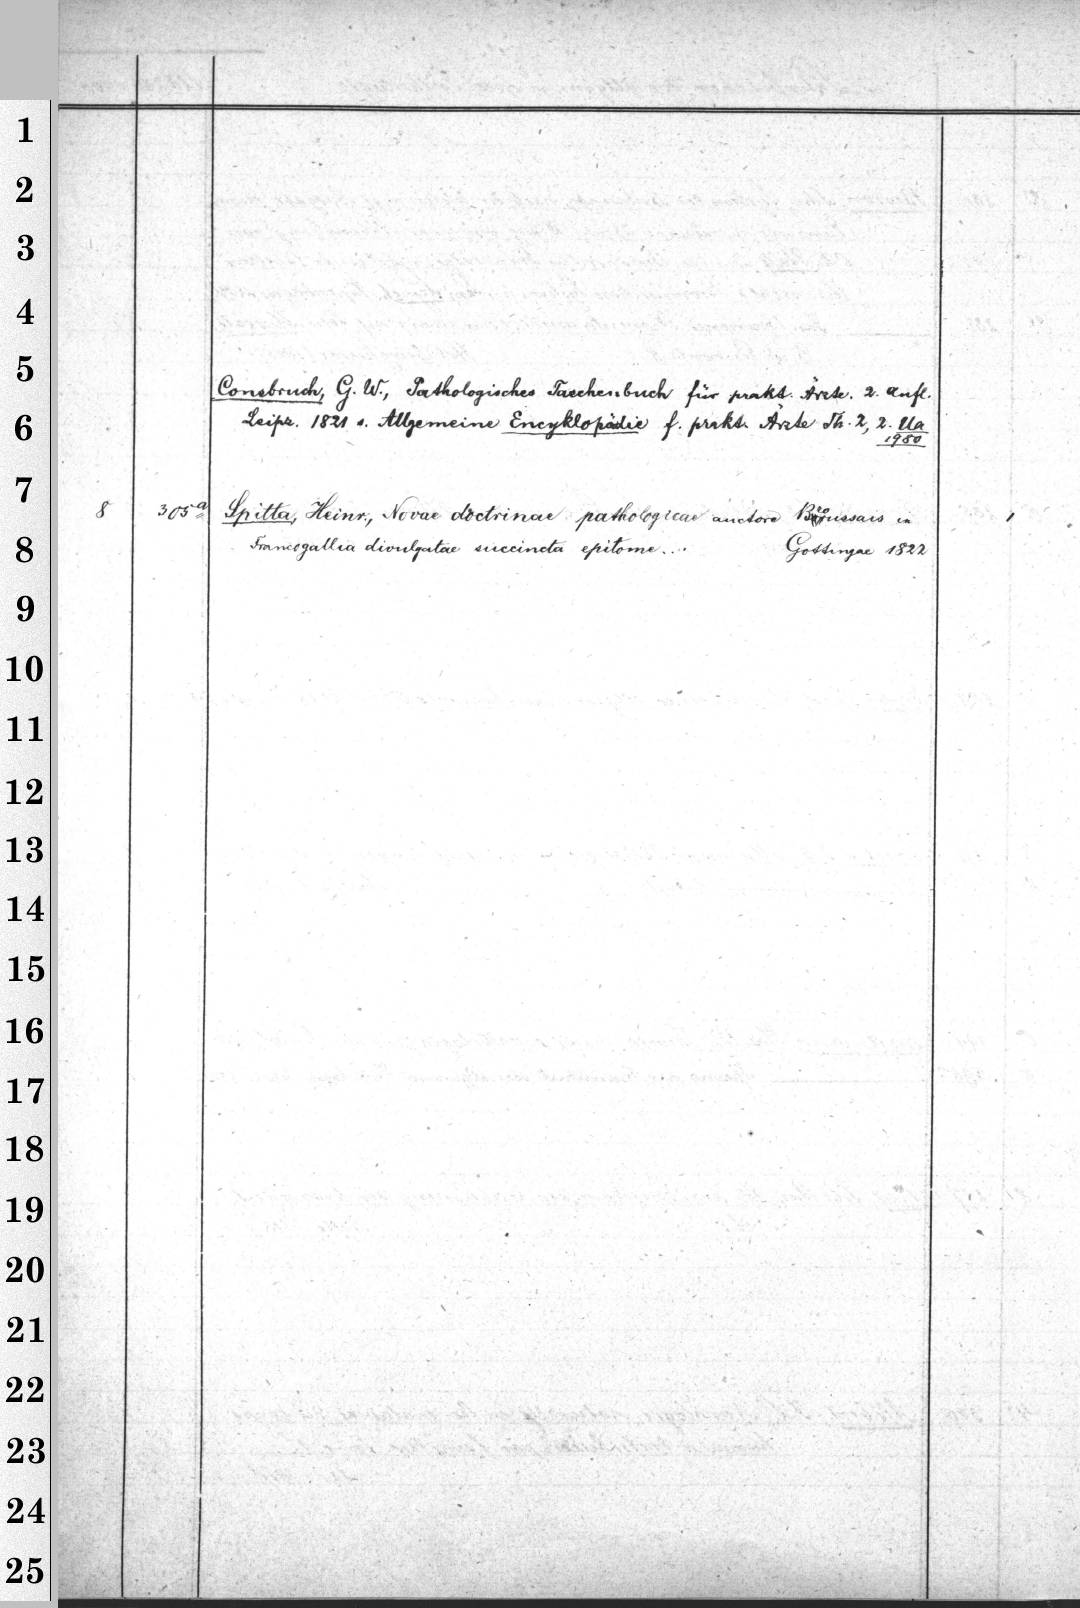 1
2
3
4
5
Consbruch, G. W., Pathologisches Taschenbuch für prakt. Ärzte. 2. Aufl.
6
Leipz. 1821 s. Allgemeine Encyklopädie f. prakt. Ärzte Th. 2, 2. Ua
1980
7
8 305a Spitta, Heinr., Novae doctrinae pathologicae auctore Broussais in
8
Francogallia divulgatae succincta epitome... Gottingae 1822
9
10
11
12
13
14
15
16
17
18
19
20
21
22
23
24
25